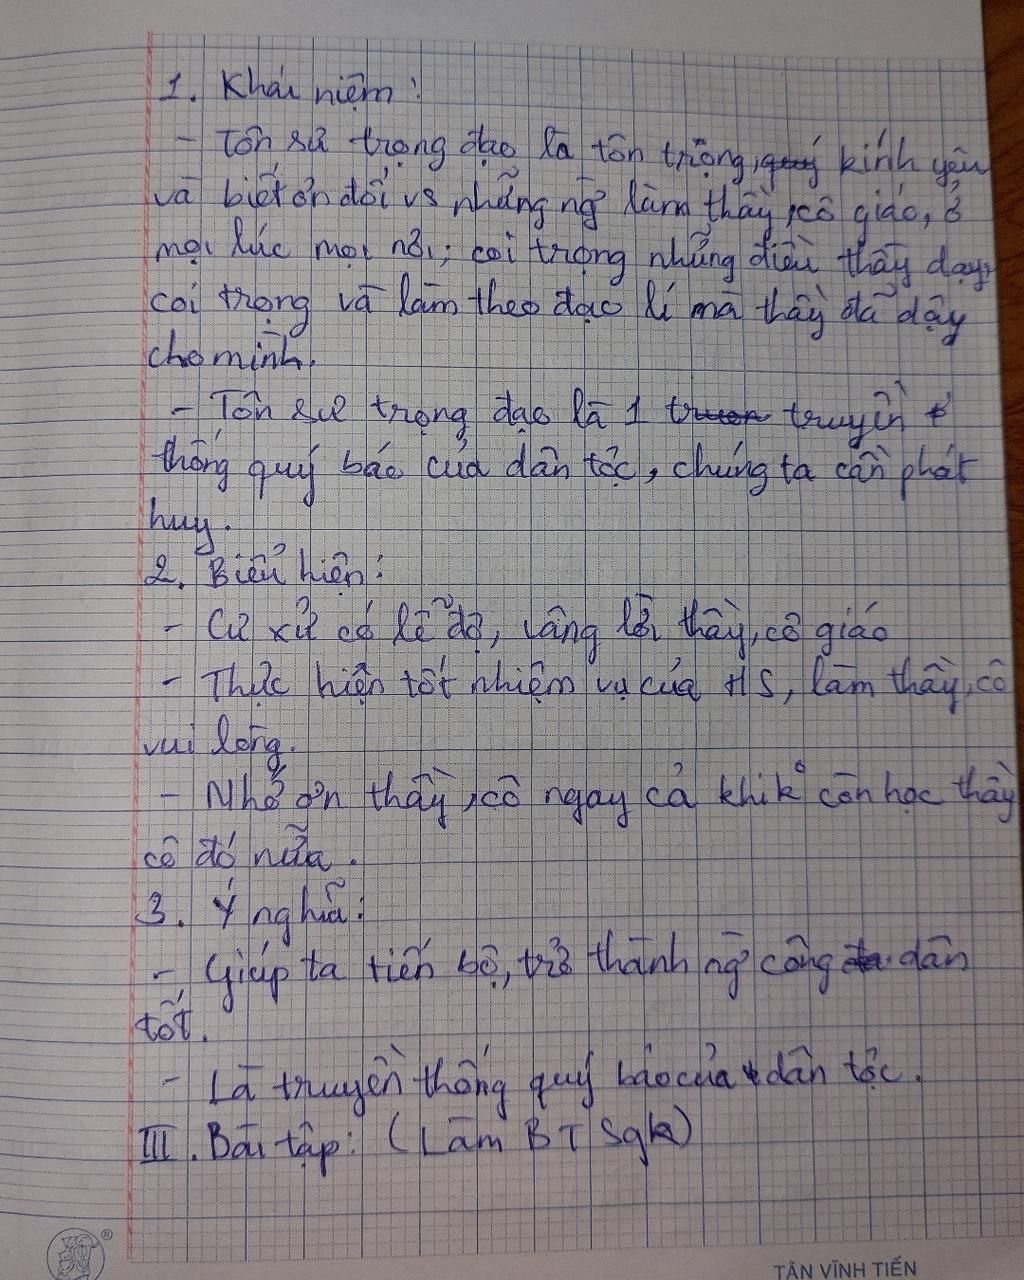 1. Khái niệm:
- Tôn sư trọng đạo là tôn trọng, quý kính yêu
và biết ơn đối vs những ng` làm thầy, cô giáo, ở
mọi lúc mọi nơi; coi trọng những điều thầy dạy,
coi trọng và làm theo đạo lí mà thầy đã dậy
cho mình.
- Tôn sư trọng đạo là 1 truyền t
thống quý báo của dân tộc, chúng ta cần phát
huy.
2. Biểu hiện:
- Cư xử có lễ độ, vâng lời thầy, cô giáo
- Thực hiện tốt nhiệm vụ của HS, làm thầy, cô
vui lòng.
- Nhớ ơn thầy, cô ngay cả khi k° còn học thầy
cô đó nữa.
3. Ý nghĩa:
- Giúp ta tiến bộ, trở thành ng` công dân
tốt.
- Là truyền thống quý báo của dân tộc.
III. Bài tập: (Làm BT Sgk)
®
TÂN VĨNH TIẾN